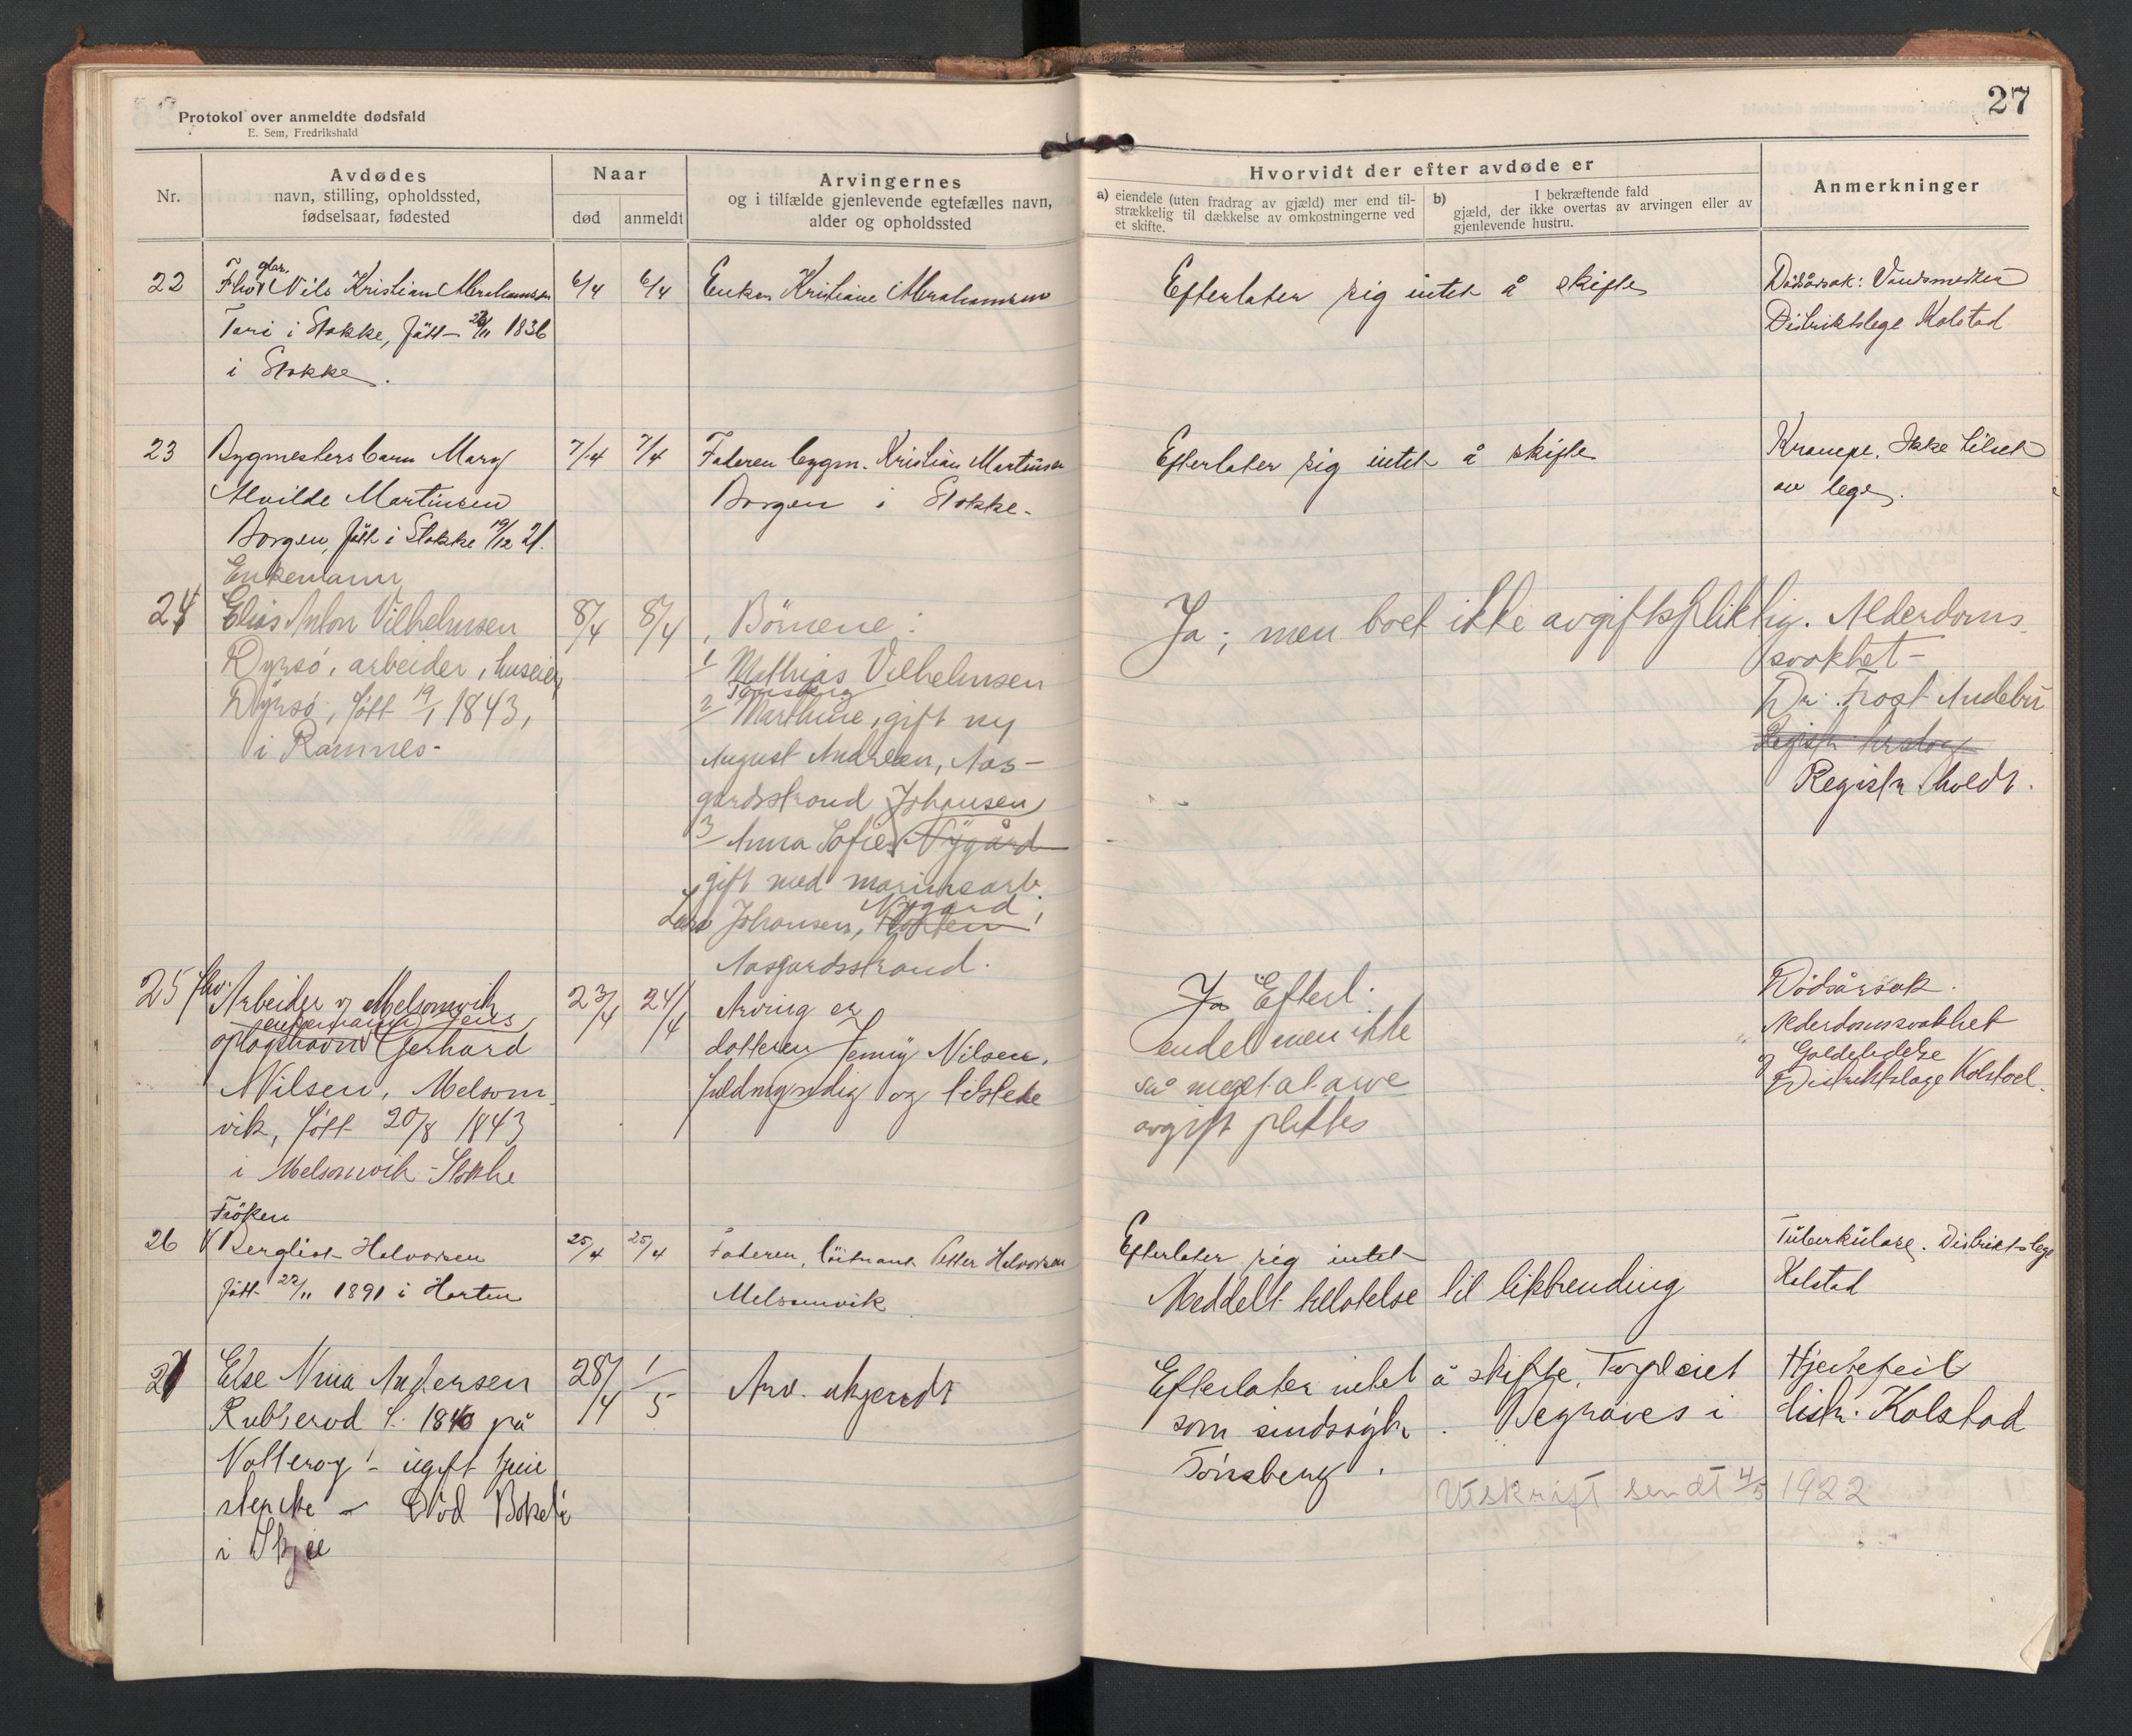 27
Protokol over anmeldte dødsfald
E. Sem, Fredrikshald
Nr.
Avdødes
navn, stilling, opholdssted,
fødselsaar, fødested
Naar
død anmeldt
Arvingernes
og i tilfælde gjenlevende egtefælles navn,
alder og opholdssted
Hvorvidt der efter avdøde er
a) eiendele (uten fradrag av gjæld) mer end til-
strækkelig til dækkelse av omkostningerne ved
et skifte.
b) I bekræftende fald
gjæld, der ikke overtas av arvingen eller av
gjenlevende hustru.
Anmerkninger
22 Nils Kristian Abrahamsen 6/4 6/4 Enken Kristiane Abrahamsen Efterlater sig intet å skifte Dödsårsak:
i Stokke, fött 1836 Distriktslege Kolstad
i Stokke.
23 Bygmestersbarn Mary 7/4 7/4 Faderen bygm. Kristian Martinsen Efterlater sig intet å skifte Krampe. Ikke tilset
Alvilde Martinsen Borgen i Stokke. av lege.
Borgen, fött i Stokke 19/12 21.
Enkemann
24 Elias Anton Vilhelmsen 8/4 8/4 Börnene: Ja; men boet ikke avgiftspliktig. Alderdoms
Dyrsö, arbeider, huseier, 1 Mathias Vilhelmsen svakhet -
Tønsberg
Dyrsö, fött 19/1 1843, 2 Marthine, gift m/ Dr. Frost Andebu
i Ramnes - August Andresen, Aas-
gardsstrand Johansen Registr. holdt.
3 Anna Sofie Nygård
gift med marinearb.
Nygard,
Lars Johansen, Horten
Aasgardsstrand.
25 fhv. Arbeider v/ Melsomvik 23/4 24/4 Arving er Ja Efterl. Dödsårsak.
enkemann Jens
oplagshavn Gerhard datteren Jenny Nilsen, endel men ikke Alderdomssvakhet
Nilsen, Melsom fuldmyndig og tilstede så meget at arve Distriktslæge Kolstad.
vik, fött 20/8 1843 avgift pliktes
i Melsomvik - Stokke
Fröken
26 Bergliot Halvorsen 25/4 25/4 Faderen, löitnant Petter Halvorsen Efterlater sig intet Tuberkulose. Distriktslege
fött 22/11 1891 i Horten Melsomvik Meddelt tillatelse til likbrending Kolstad
27 Else Nina Andersen 28/4 1/5 Arv. ukjendt Efterlater intet å skifte. Forpleiet Hjertefeil
Rubberød f. 1840 på som sindssyk. Begraves i distr. Kolstad
Nötteröy - ugift tjene Tönsberg.
stepike - Död i Skjee
Utskrift sendt 4/5 1922